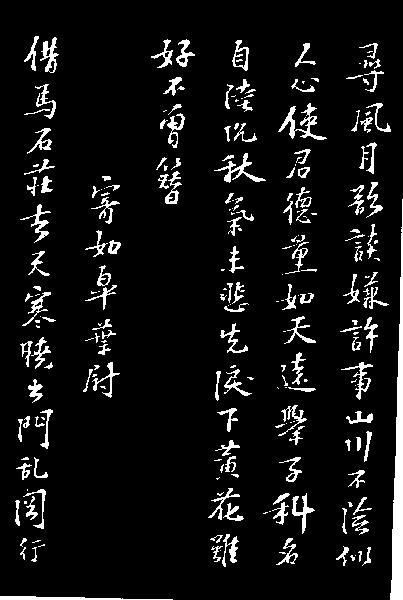 尋風月欲談嫌許事山川不險似
人心使君德量如天遠舉子科名
自陸沉秋氣未悲先淚下黃花雖
好不曾簪
寄如皋葉尉
借馬石莊去天寒曉出門乱闊行